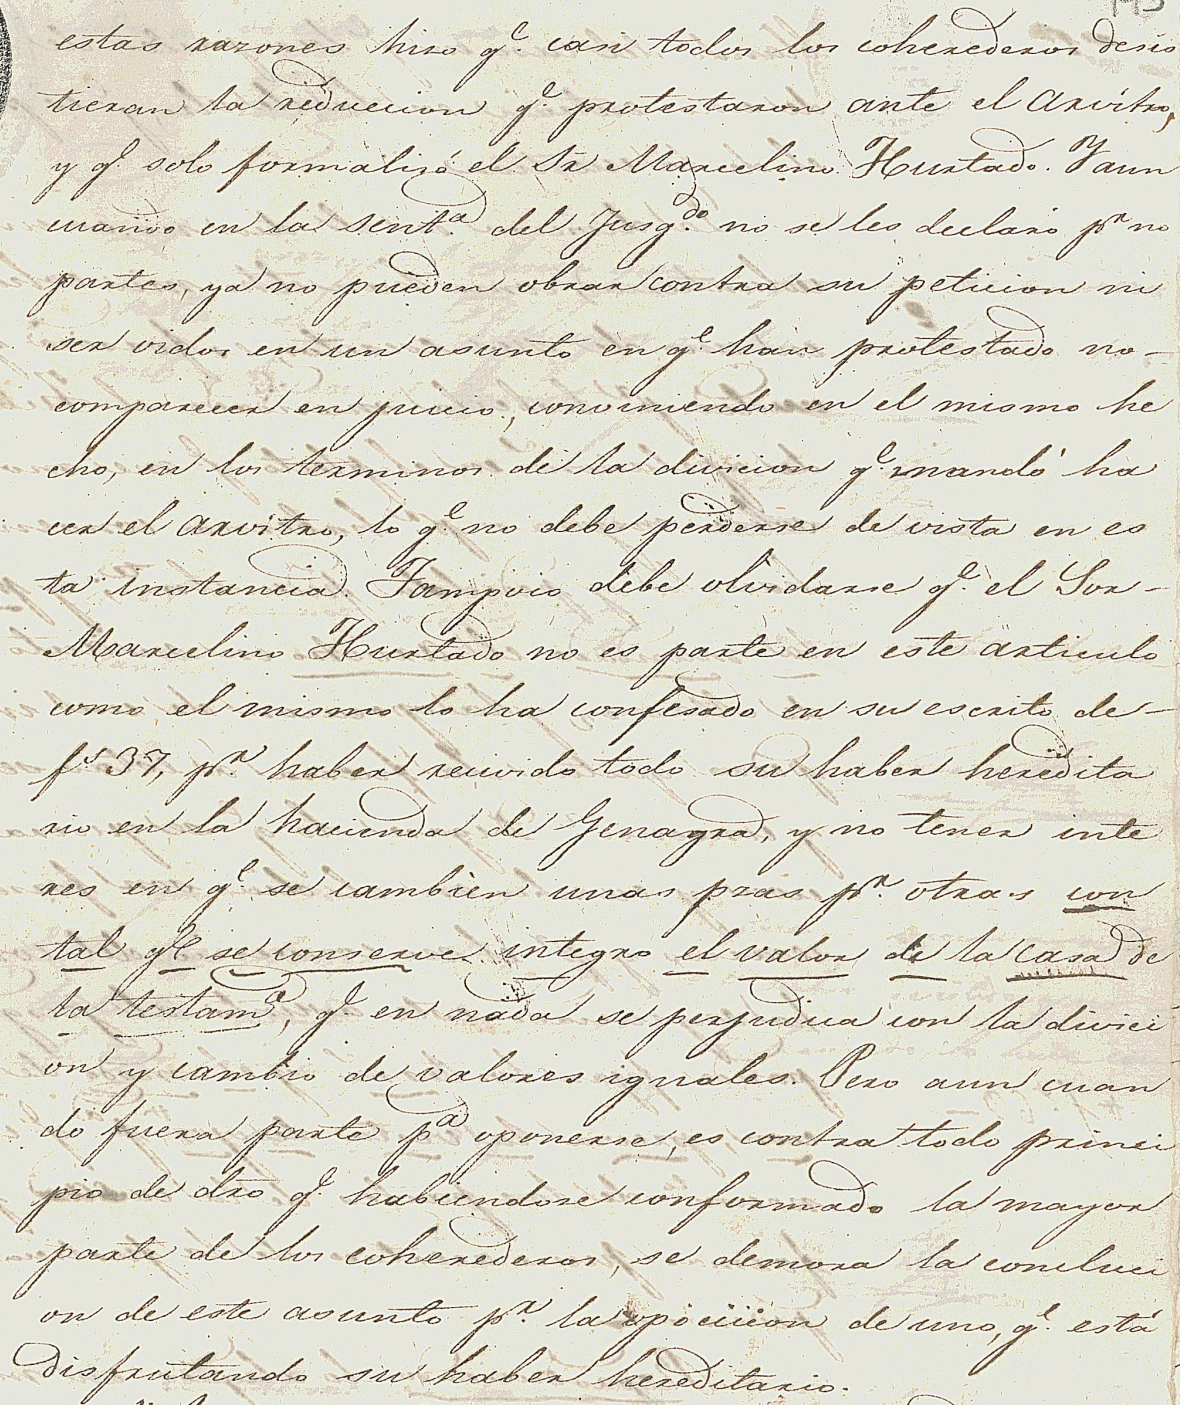 estas razones hiso q.e casi todos los coherederos desis
tieran la reduccion q.e protestaron ante el Arvitro,
y q.e solo formalizó el Sr Marcelino Hurtado. Y aun
cuando en la sent.a del Jusg.do no se les declaro p.r no
partes, ya no pueden obrar contra su peticion ni
ser oidos en un asunto en q.e han protestado no-
comparecer en juicio, conviniendo en el mismo he
cho, en los terminos de la divicion q.e mandó ha
cer el arvitro, lo q.e no debe perderse de vista en es
ta instancia. Tampoco debe olvidarse q.e el Sor-
Marcelino Hurtado no es parte en este articulo
como el mismo lo ha confesado en su escrito de-
f.s 37, p.r haber recivido todo su haber heredita
rio en la hacienda de Genagra, y no tener inte
res en q.e se cambien unas pzas p.r otras con
tal q.e se conserve integro el valor de la casa de
la testam.a, q.e en nada se perjudica con la divici
on y cambio de valores iguales. Pero aun cuan
do fuera parte p.a oponerse, es contra todo princi
pio de dro q.e habiendose conformado la mayor
parte de los coherederos, se demora la concluci
on de este asunto p.r la opocicion de uno, q.e está
disfrutando su haber hereditario.